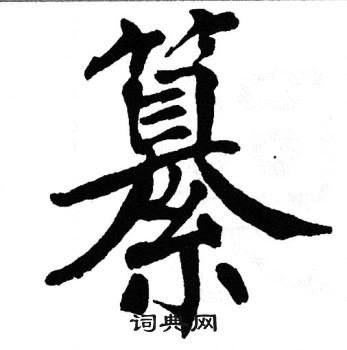 纂
词典网